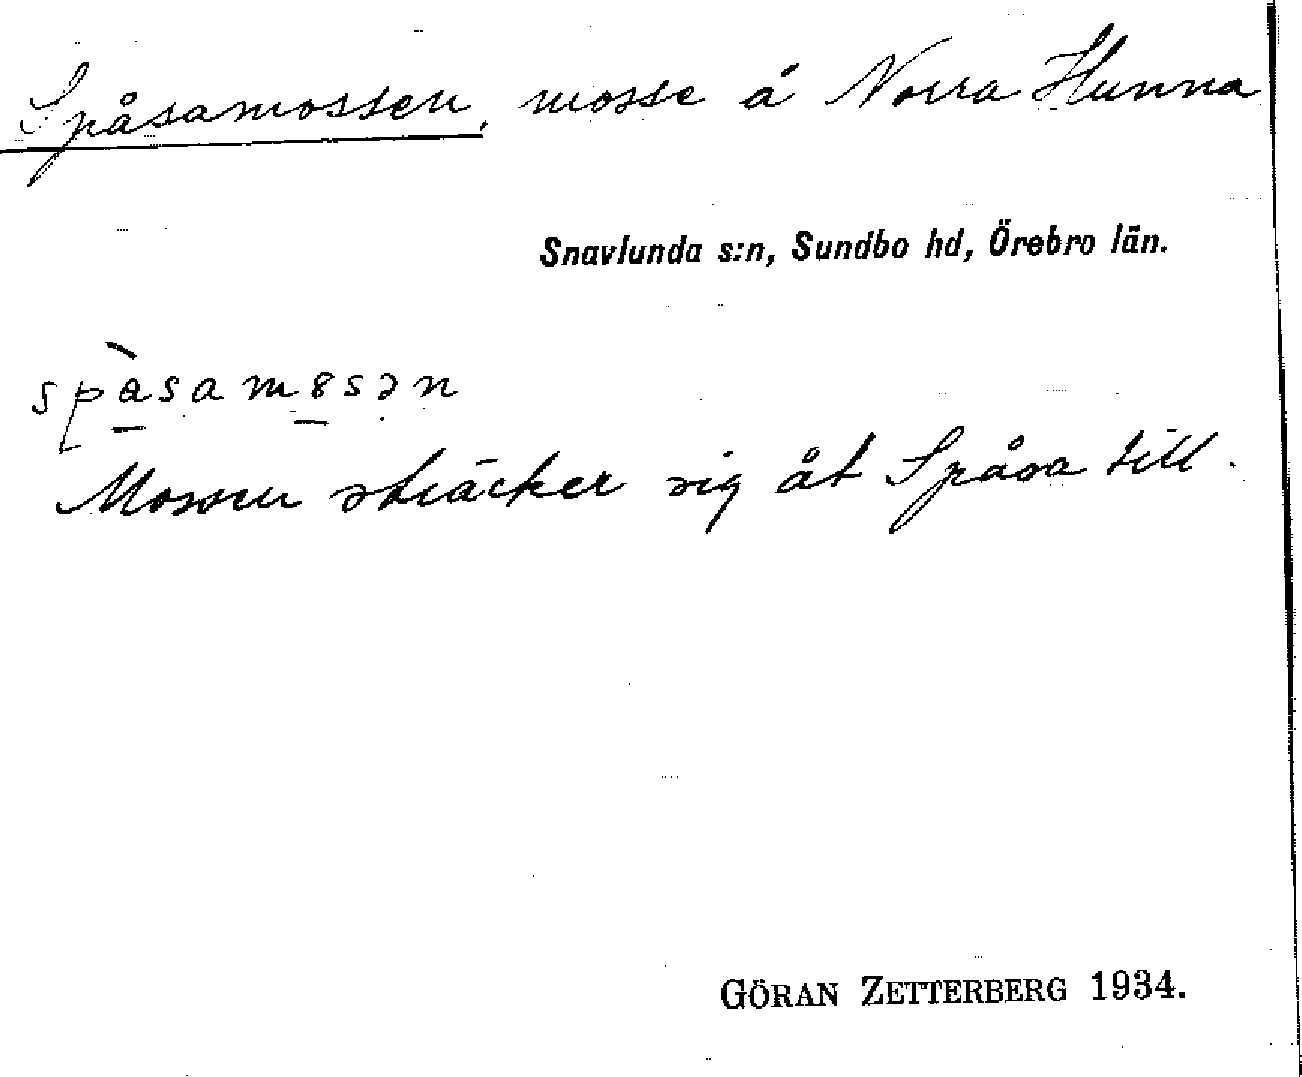 Spåsamossen, mosse å Norra Hunna
Snavlunda s:n, Sundbo hd, Örebro län.
spàsamɞsən
Mossen sträcker sig åt Spåsa till.
GÖRAN ZETTERBERG 1934.